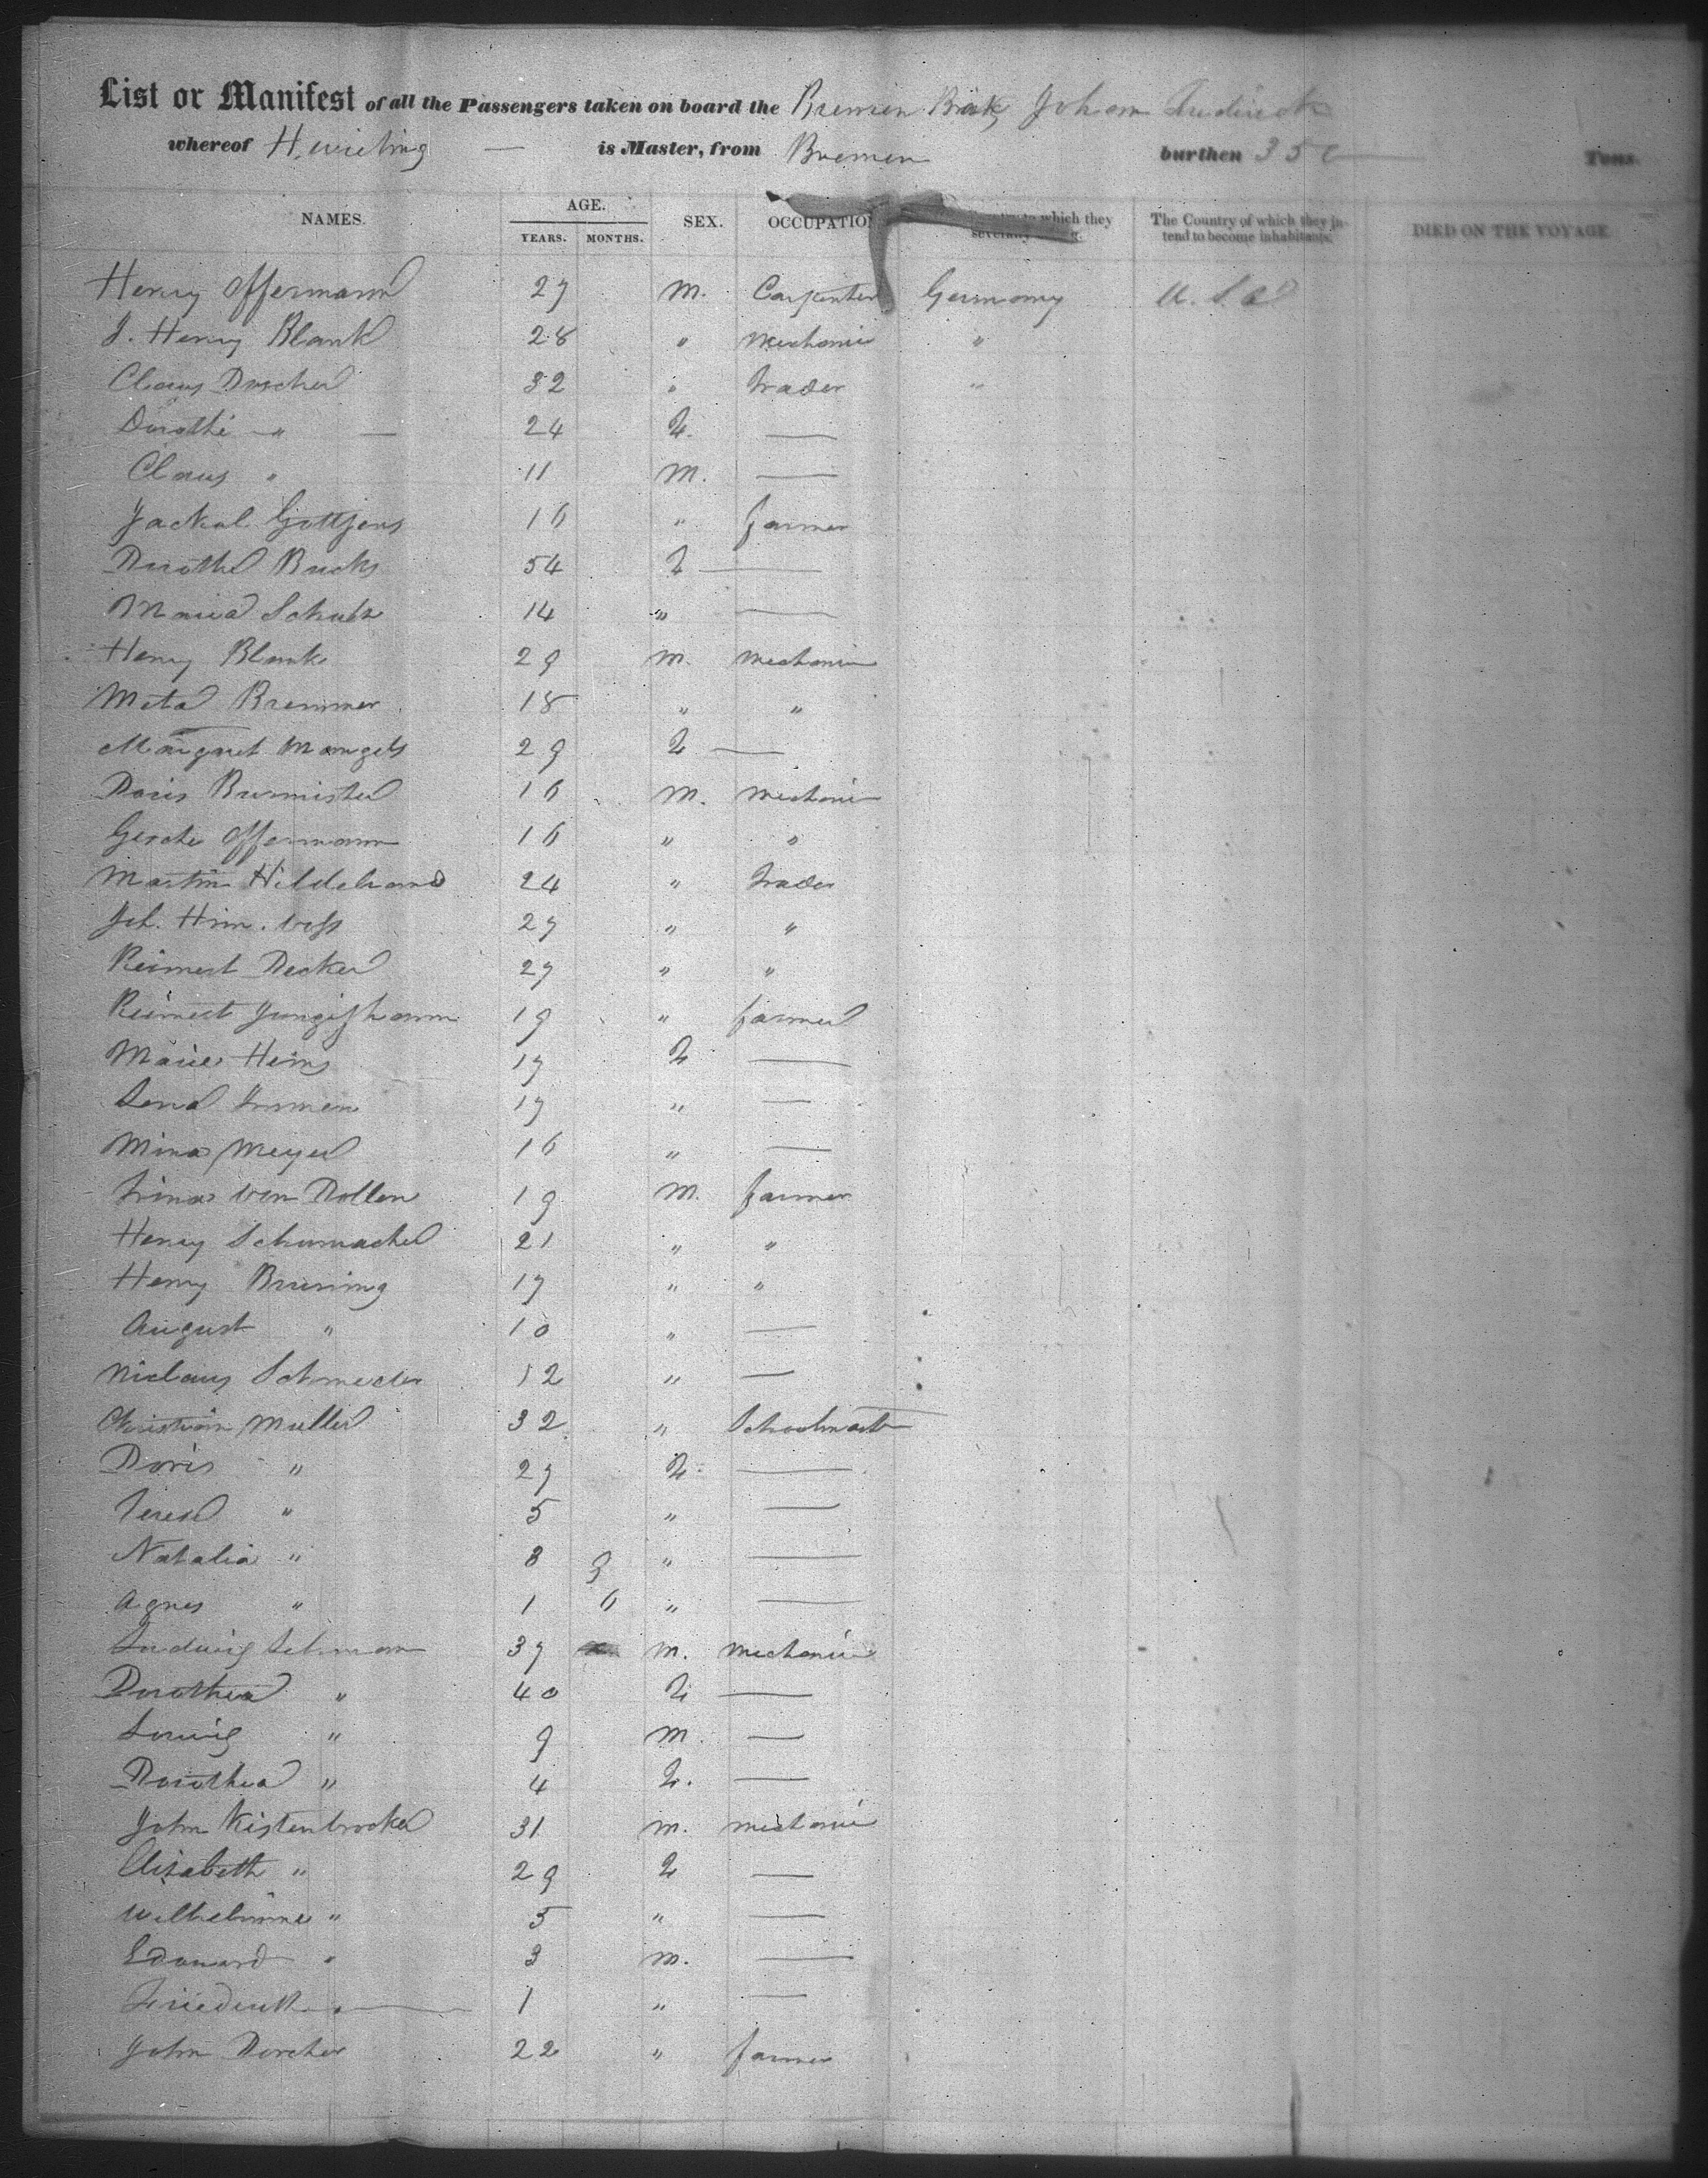 List or Manifest of all the Passengers taken on board the Bremen Bark Johann
whereof H. Wieting — is Master, from Bremen burthen 350 Tons.
NAMES. AGE. YEARS. MONTHS. SEX. OCCUPATION which they severally The Country of which they intend to become inhabitants. DIED ON THE VOYAGE
Henry Offermann 27 M. Carpenter Germany U.S.A
J. Henry Blank 28 " Mechanic "
Claus Doscher 32 " Trader "
Dorothe " — 24 F. —
Claus " 11 M. —
Gottjens 16 " farmer
Dorothe Bucks 54 F —
Maria Schultz 14 " —
Henry Blanke 29 M. mechanic
Meta Bremmer 18 " "
Margaret Mangels 29 F —
Doris Burmister 16 M. mechanic
Gerche Offermann 16 " "
Martin Hildebrand 24 " Trader
Joh. Hinr. Voss 27 " "
Decker 27 " "
19 " farmer
Marie Heins 17 F —
Lena 17 " —
Mina Meyer 16 " —
Trina von Dollen 19 M. farmer
Henry Schumacher 21 " "
Henry Bruning 17 " "
August " 10 " —
Niclaus Schmeder 12 " —
Christian Muller 32 " Schoolmaster
Doris " 27 F. —
" 5 " —
Natalia " 3 9 " —
Agnes " 1 6 " —
Ludwig 37 M. mechanic
Dorothea " 40 F —
" 9 M. —
Dorothea " 4 F. —
John Kistenbrocker 31 M. mechanic
Elisabeth " 29 F —
Wilhelmine " 5 " —
Edouard " 3 M. —
Friederich " — 1 " —
John Dorcher 22 " farmer